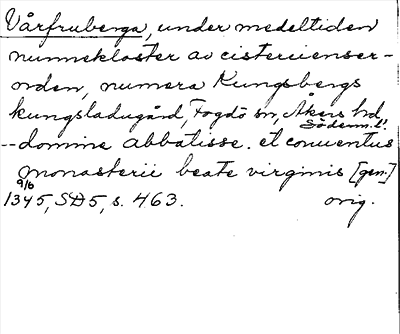 Vårfruberga, under medeltiden
nunnekloster av cistercienser-
orden, numera Kungsbergs
kungsladugård, Fogdö sn, Åkers hd
Söderm. l!
--domine abbatisse. et conuentus
monasterii beate virginis [gen.]
9/6
1345, SD5, s. 463. orig.